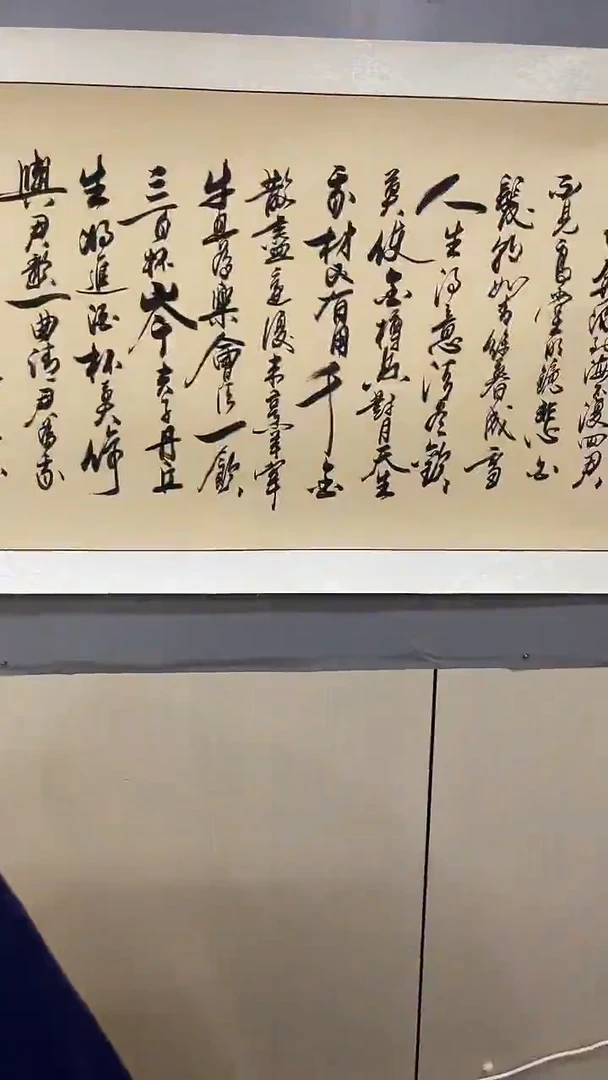 奔流到海不復回君
不見高堂明鏡悲白
髮朝如青絲暮成雪
人生得意須盡歡
莫使金樽空對月天生
我材必有用千金
散盡還復來烹羊宰
牛且為樂會須一飲
三百杯岑夫子丹丘
生將進酒杯莫停
與君歌一曲請君為我